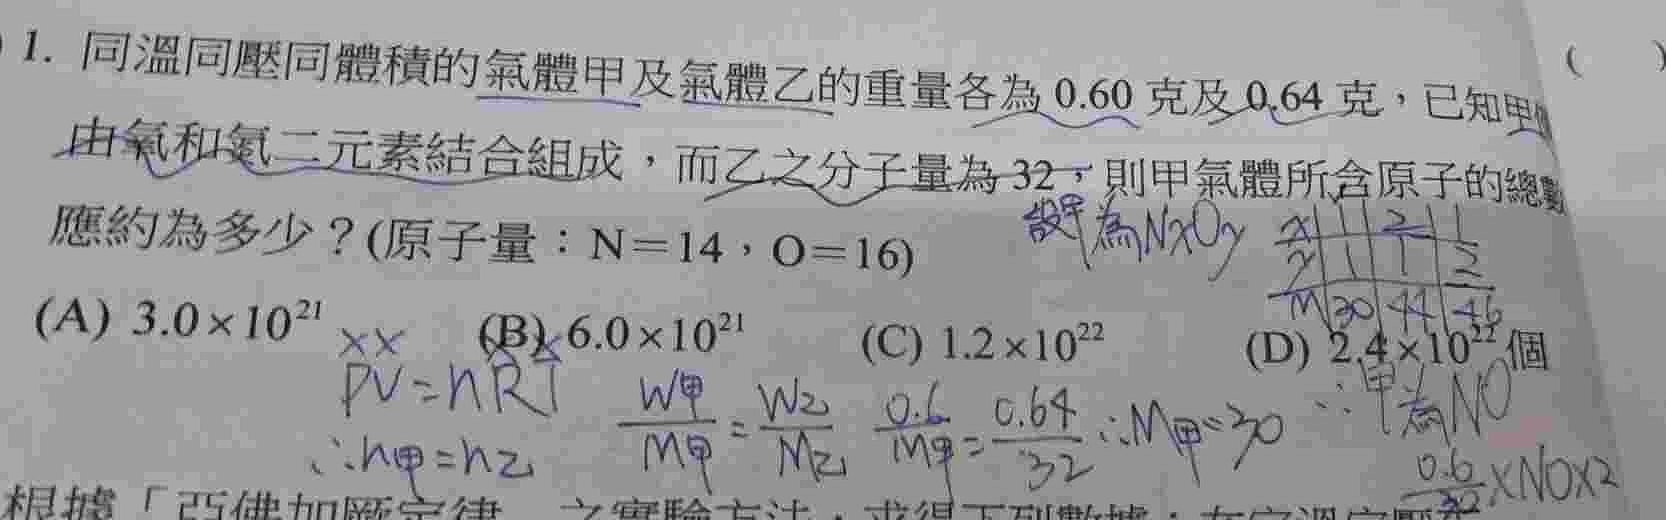 1. 同溫同壓同體積的氣體甲及氣體乙的重量各為 0.60 克及 0.64 克，已知甲僅 ( )
由氧和氮二元素結合組成，而乙之分子量為 32，則甲氣體所含原子的總數
應約為多少？(原子量：N＝14，O＝16)
設甲為NxOy
x 1 2 1
y 1 1 2
M 30 44 46
(A) 3.0×10²¹ (B) 6.0×10²¹ (C) 1.2×10²² (D) 2.4×10²² 個
PV=nRT
∴n甲=n乙
W甲/M甲=W乙/M乙
0.6/M甲=0.64/32 ∴M甲=30
∴甲為NO
×N0×2
根據「亞佛加厥定律」之實驗方法，求得下列數據：在定溫定壓